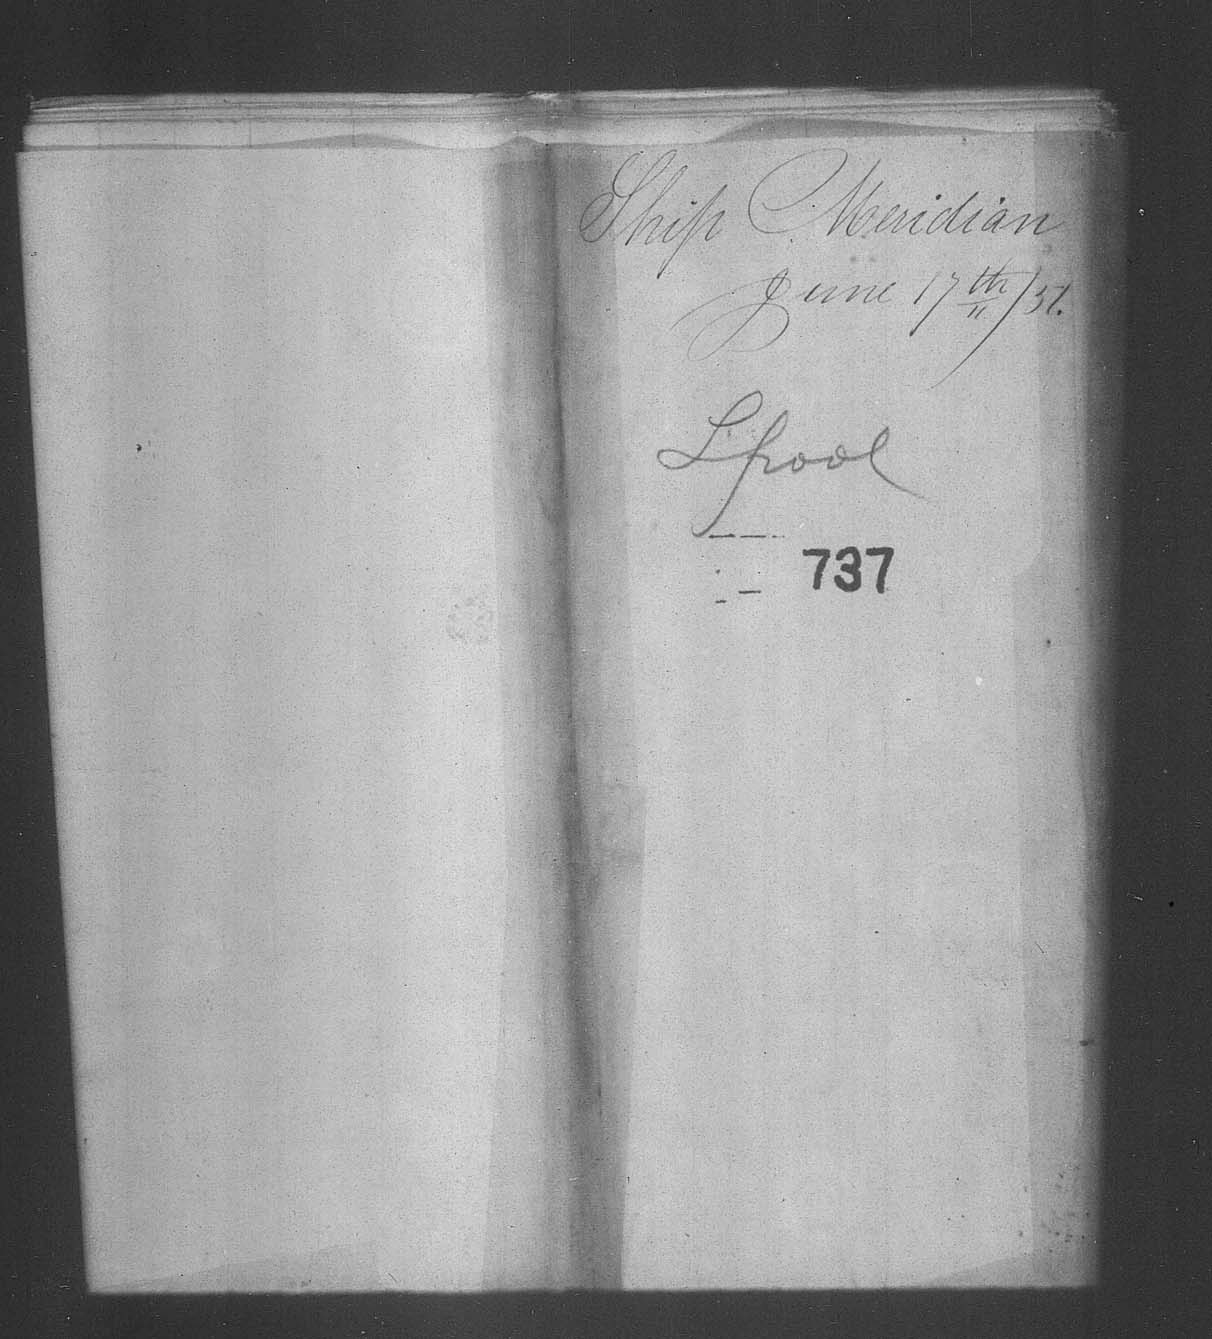 Ship Meridian
June 17th/51.
L'pool
737